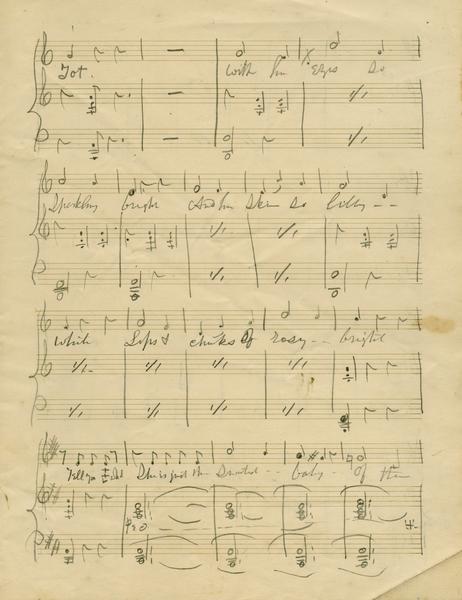 Tot. With her Eyes So
Sparkling bright And her Skin So lilly - -
White Lips & cheeks of rosy - - bright
Tell you She is just the Sweetest - - baby - Of them